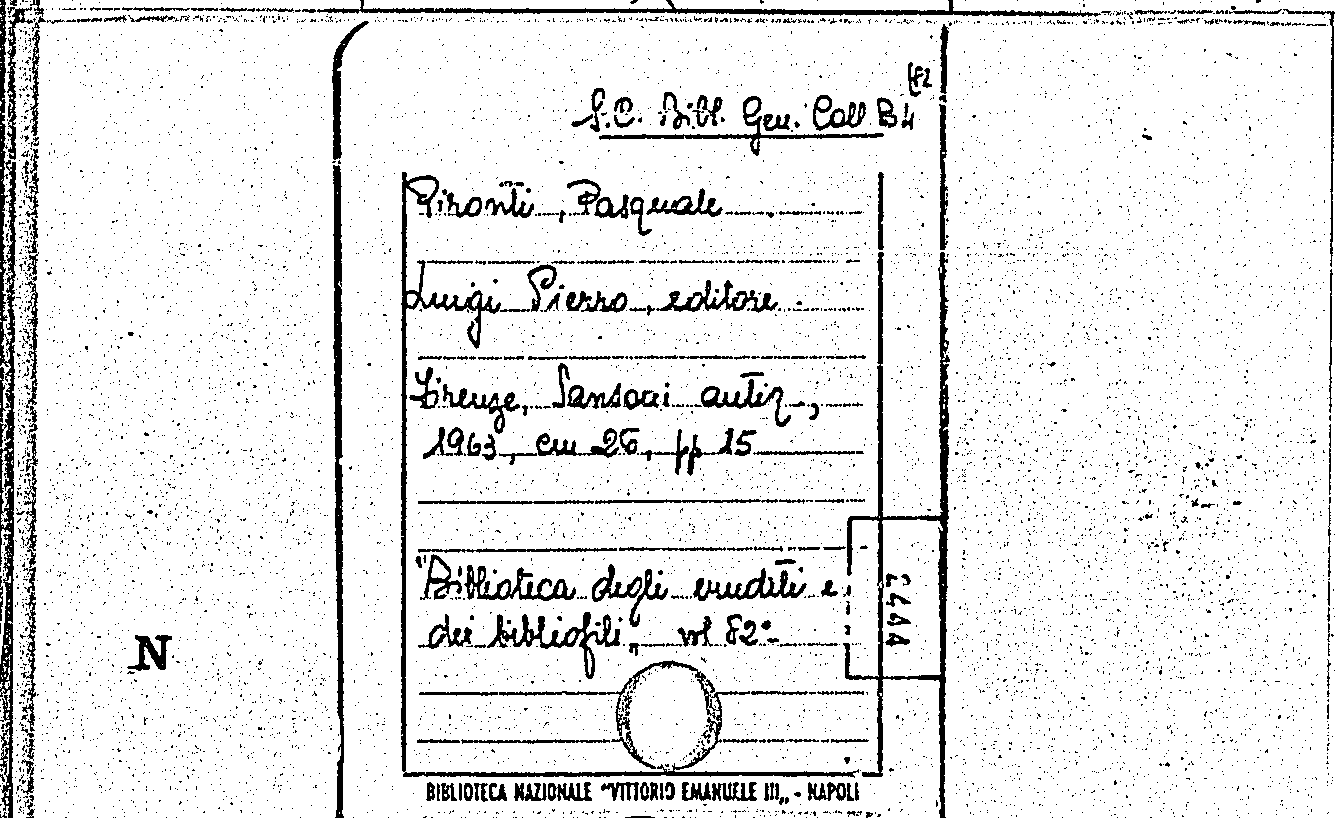 S.C. Bibl. Gen. Coll B4
(82
Pironti, Pasquale
Luigi Pierro, editore.
Firenze, Sansoni antiq.,
1963, cm 26, pp 15
"Biblioteca degli eruditi e
dei bibliofili„ vol 82°.
2444
N
BIBLIOTECA NAZIONALE "VITTORIO EMANUELE III„ - NAPOLI